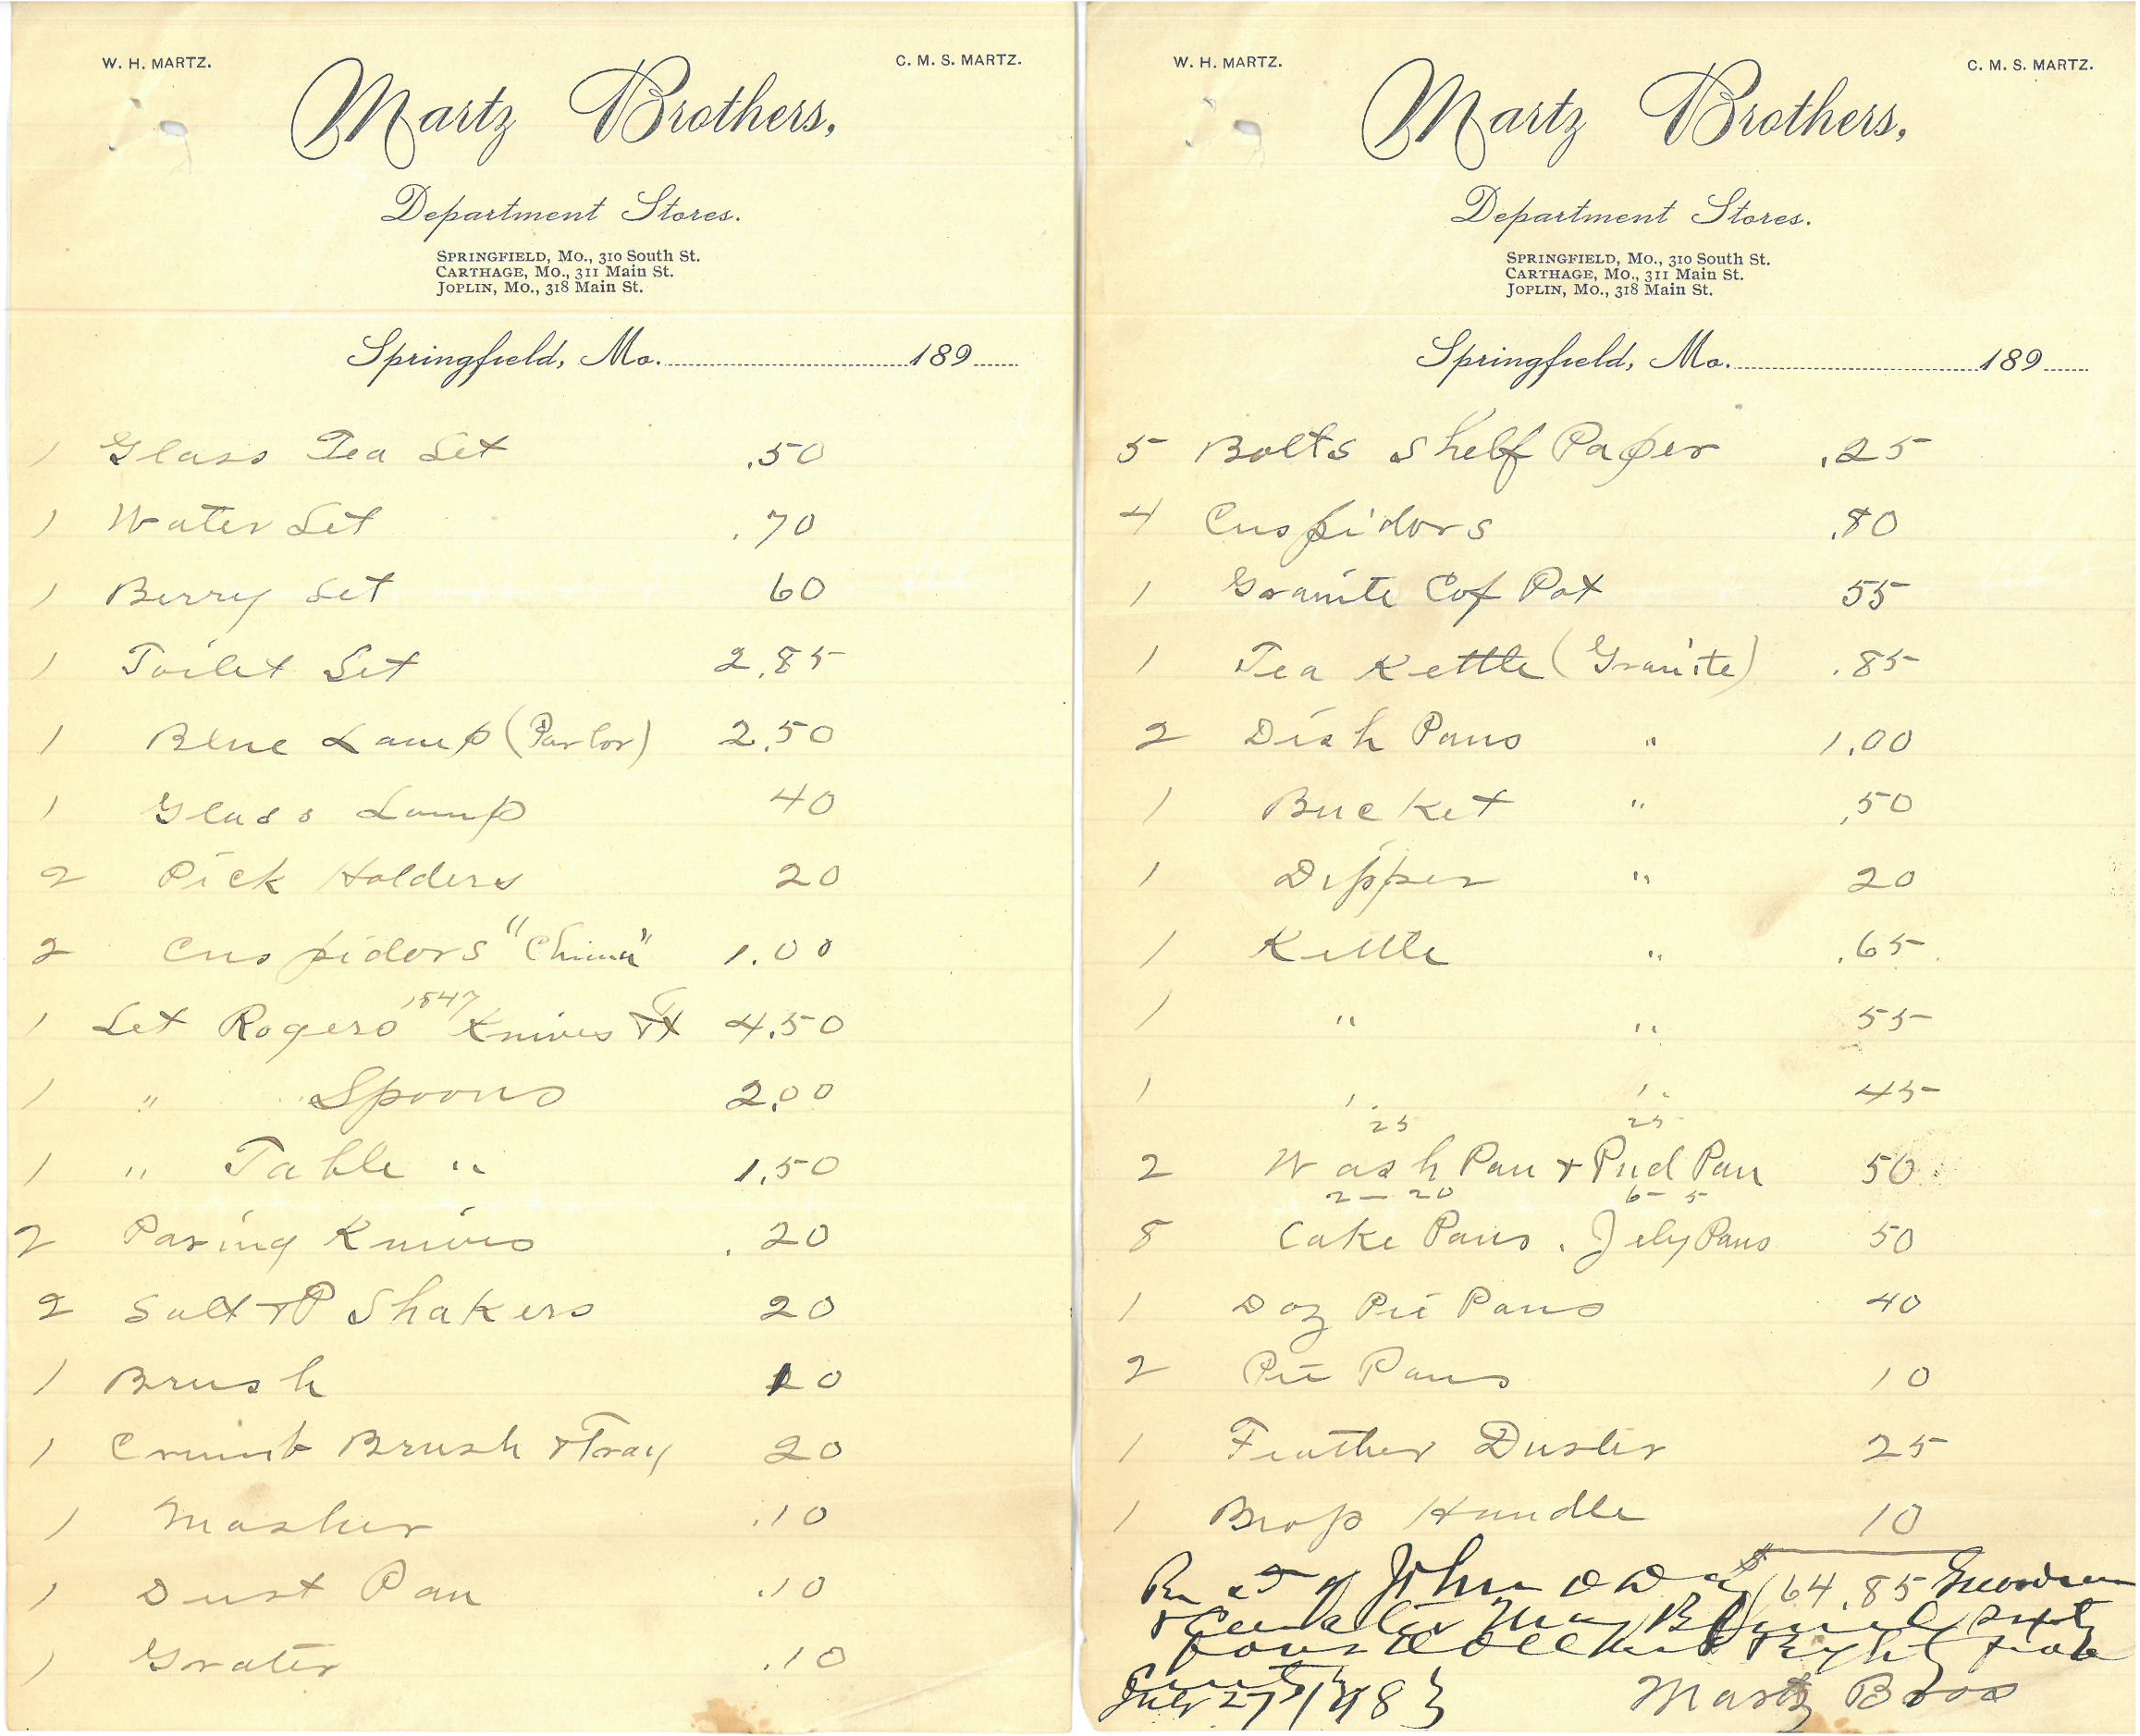 W. H. MARTZ. C. M. S. MARTZ.
Martz Brothers,
Department Stores.
SPRINGFIELD, MO., 310 South St.
CARTHAGE, MO., 311 Main St.
JOPLIN, MO., 318 Main St.
Springfield, Mo. 189
1 Glass Tea Set .50
1 Water Set .70
1 Berry Set 60
1 Toilet Set 2.85
1 Blue Lamp (Parlor) 2.50
1 Glass Lamp 40
2 Pick Holders 20
2 Cuspidors "China" 1.00
1 Set Rogers 1847 Knives 4.50
1 " Spoons 2.00
1 " Table " 1.50
2 Paring Knives .20
2 Salt + P Shakers 20
1 Brush 10
1 Crumb Brush + Tray 20
1 Masher .10
1 Dust Pan .10
1 Grater .10
W. H. MARTZ. C. M. S. MARTZ.
Martz Brothers,
Department Stores.
SPRINGFIELD, MO., 310 South St.
CARTHAGE, MO., 311 Main St.
JOPLIN, MO., 318 Main St.
Springfield, Mo. 189
5 Bolts Shelf Paper .25
4 Cuspidors .80
1 Granite Cof Pot 55
1 Tea Kettle (Granite) .85
2 Dish Pans " 1.00
1 Bucket " .50
1 Dipper " 20
1 Kettle " .65
1 " " 55
1 " " 45
25 25
2 Wash Pan + Pud Pan 50
2 - 20 6 - 5
8 Cake Pans. Jely Pans 50
1 Doz Pie Pans 40
2 Pie Pans 10
1 Feather Duster 25
1 Brop Handle 10
of John $64.85
July 27 Martz Bros